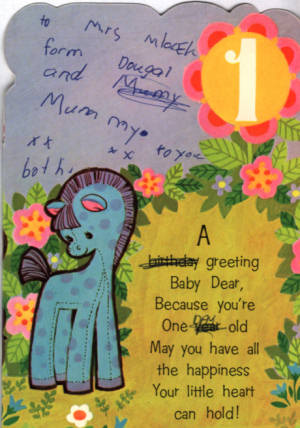 to Mrs Mlack
form Dougal
and Mummy
Mummy.
xx xx to you
both.
1
A
birthday greeting
Baby Dear,
Because you're
One year day old
May you have all
the happiness
Your little heart
can hold!